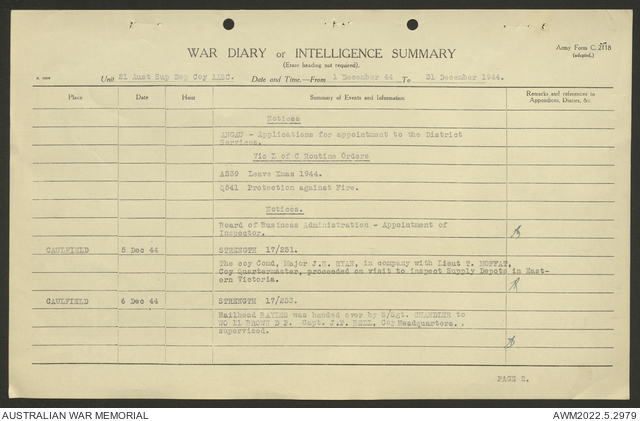 WAR DIARY or INTELLIGENCE SUMMARY
Army Form C. 2118
(adapted.)
(Erase heading not required).
Unit 21 Aust Sup Dep Coy AASC. Date and Time.—From 1 December 44 To 31 December 1944.
Place Date Hour Summary of Events and Information Remarks and references to Appendices, Diaries, &c
Notices
ANGAU - Applications for appointment to the District
Services.
Vic L of C Routine Orders
A539 Leave Xmas 1944.
Q541 Protection against Fire.
Notices.
Board of Business Administration - Appointment of
Inspector.
CAULFIELD 5 Dec 44 STRENGTH 17/251.
The coy Comd, Major J.H. RYAN, in company with Lieut T. MOFFAT,
Coy Quartermaster, proceeded on visit to inspect Supply Depots in East-
ern Victoria.
CAULFIELD 6 Dec 44 STRENGTH 17/253.
Railhead was handed over by S/Sgt. CHANDLER to
WO 11 BROWN D J. Capt. J.F. Coy Headquarters.,
supervised.
PAGE 2.
AUSTRALIAN WAR MEMORIAL AWM2022.5.2979